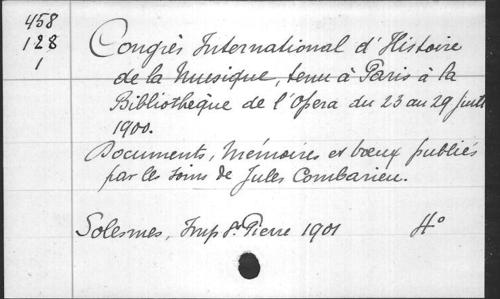 458
128
1
Congrès International d'Histoire
de la Musique, tenu à Paris à la
Bibliothèque de l'Opera du 23 au 29 Juill
1900.
Documents, Mémoires et vœux publiés
par les soins de Jules Combarieu.
Solesmes, Imp St. Pierre 1901 4°